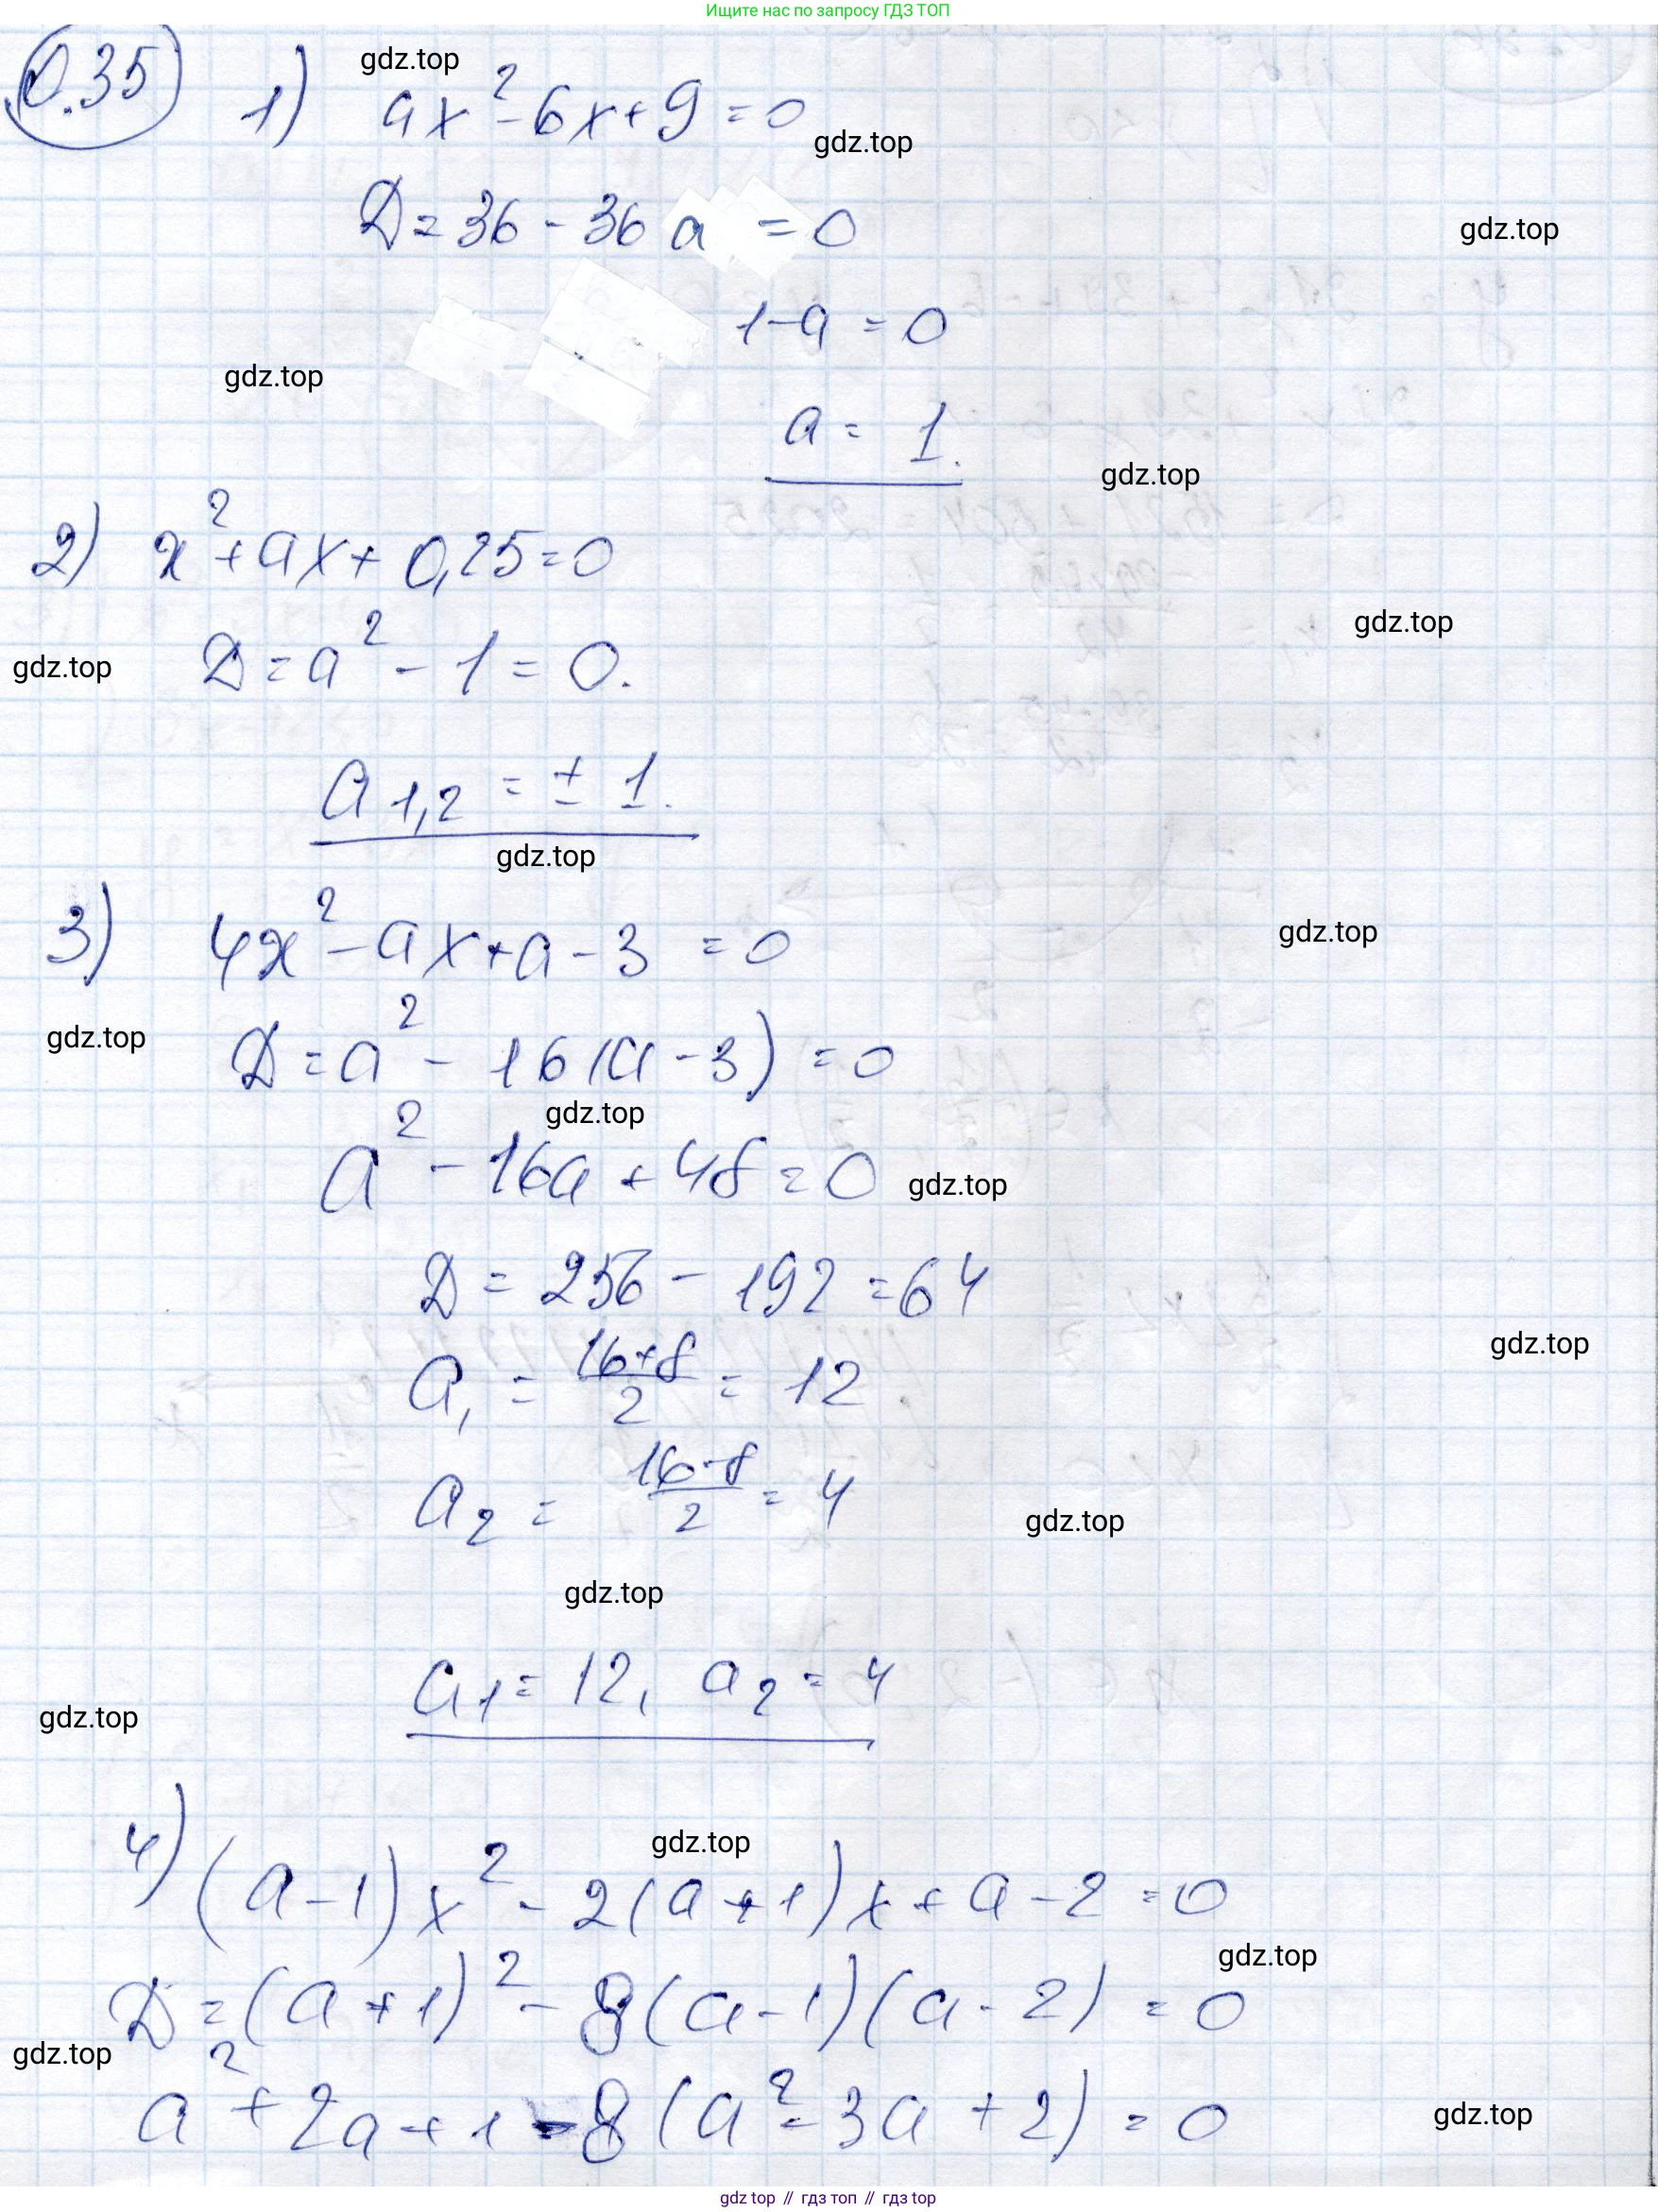 Ищите нас по запросу ГДЗ ТОП
0.35
gdz.top
1) ax²-6x+9=0
gdz.top
D=36-36a=0
gdz.top
1-a=0
gdz.top
a=1.
gdz.top
2) x²+ax+0,25=0
gdz.top
D=a²-1=0.
gdz.top
a1,2=±1.
gdz.top
3) 4x²-ax+a-3=0
gdz.top
gdz.top
D=a²-16(a-3)=0
gdz.top
a²-16a+48=0
gdz.top
D=256-192=64
gdz.top
a₁=(16+8)/2=12
a₂=(16-8)/2=4
gdz.top
gdz.top
a₁=12, a₂=4
gdz.top
4) (a-1)x²-2(a+1)x+a-2=0
gdz.top
gdz.top
D=(a+1)²-8(a-1)(a-2)=0
gdz.top
a²+2a+1-8(a²-3a+2)=0
gdz.top
gdz top // гдз топ // гдз top